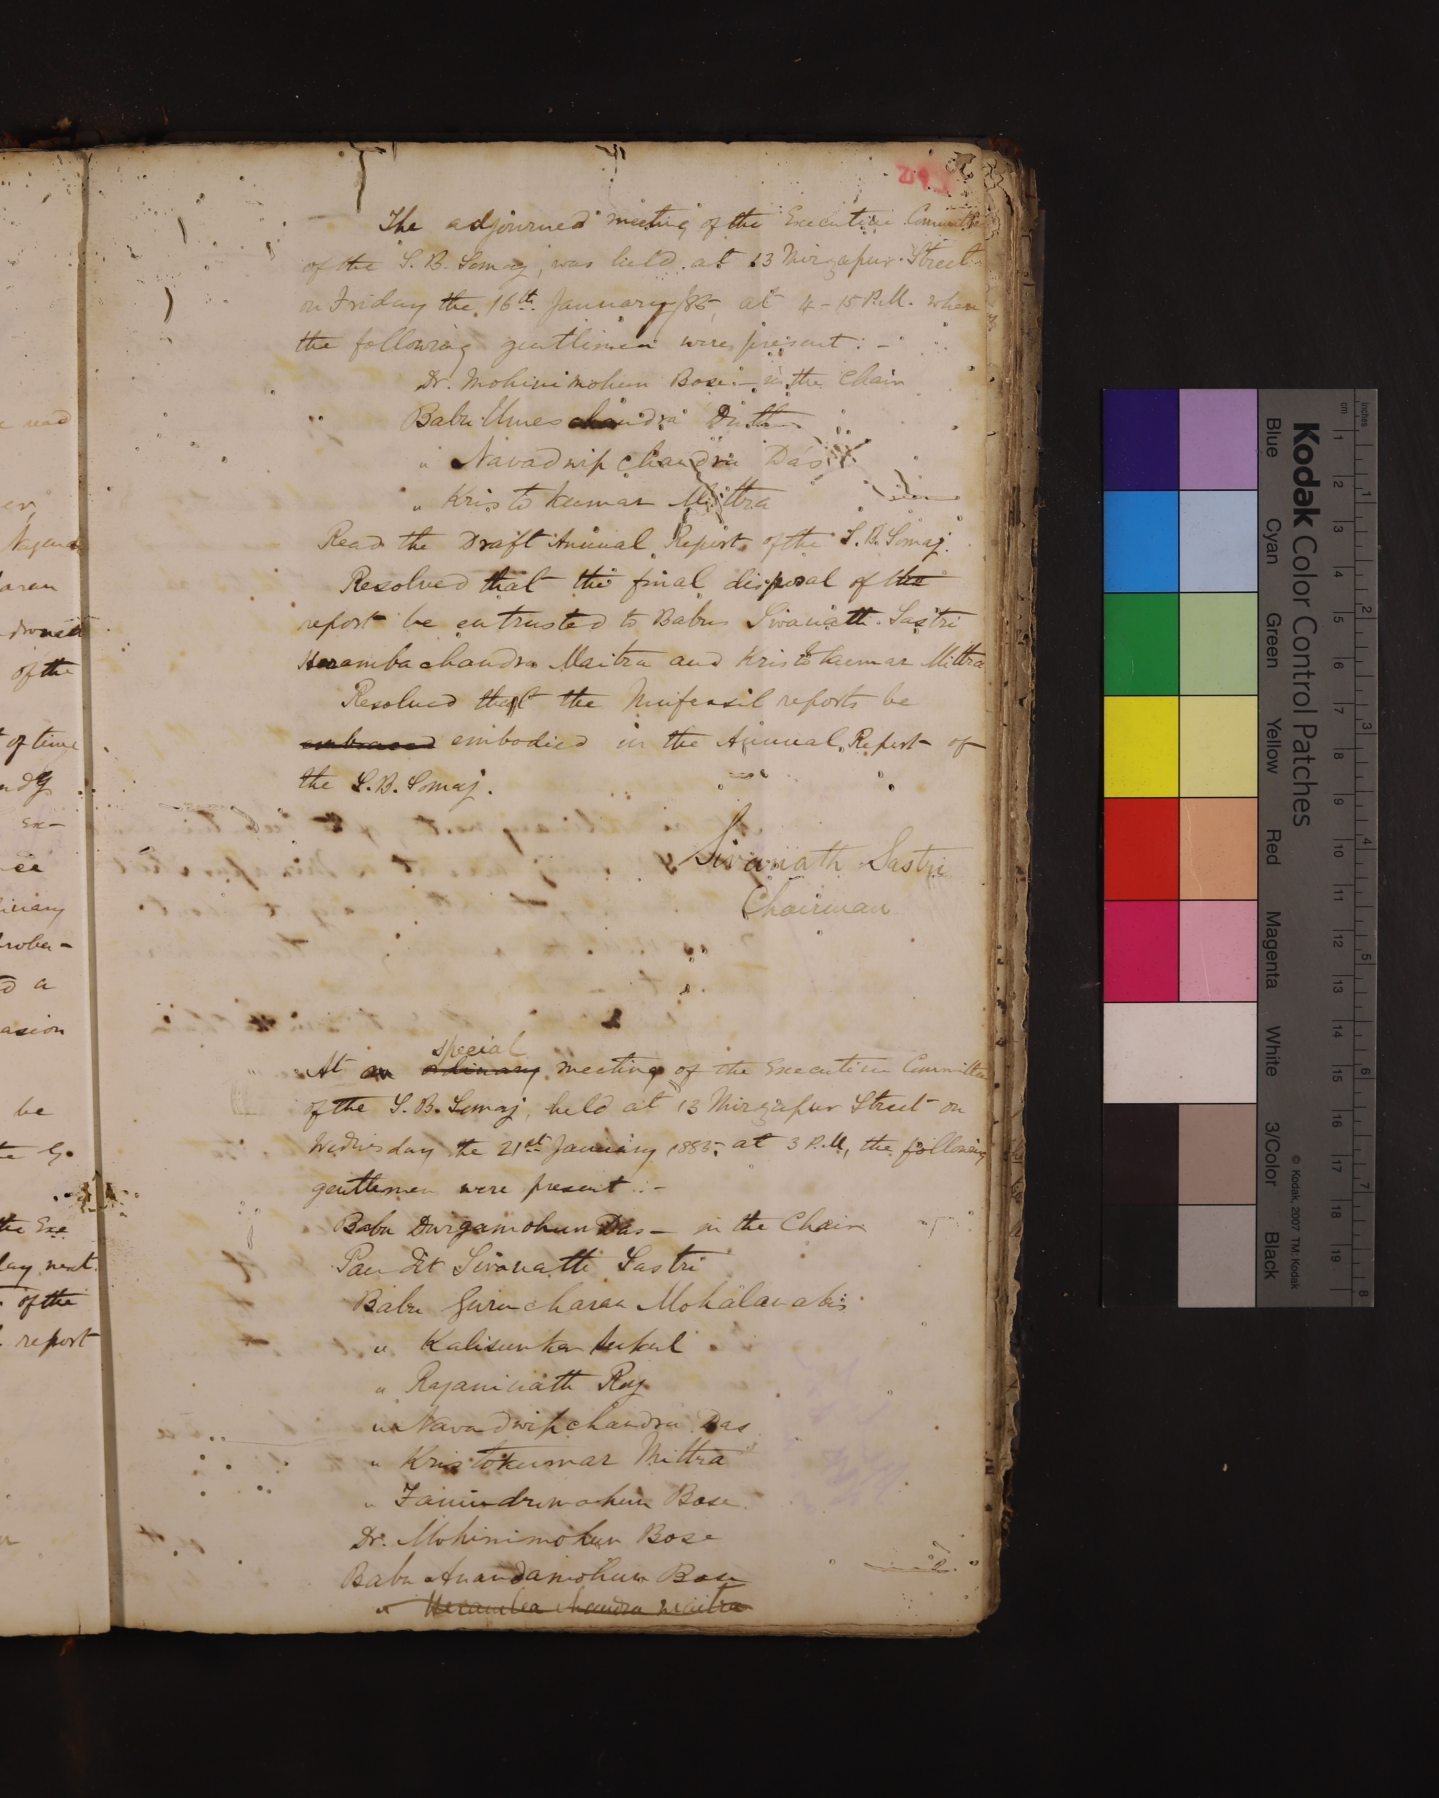 The adjourned meeting of the Executive Committee
of the S. B. Somaj, was held at 13 Mirzapur Street
on Friday the 16th January /85, at 4-15 P.M. when
the following gentlemen were present: -
Dr. Mohinimohun Bose - in the Chair
Babu Umeschandra Dutta
" Navadwipchandra Das
" Kristokumar Mittra
Read the Draft Annual Report of the S. B. Somaj.
Resolved that the final disposal of the
report be entrusted to Babus Sivanath Sastri
Herambachandra Maitra and Kristokumar Mittra
Resolved that the Mufassil reports be
embodied in the Annual Report of
the S. B. Somaj.
Sivanath Sastri
Chairman
special
At an ordinary meeting of the Executive Committee
of the S. B. Somaj, held at 13 Mirzapur Street on
Wednesday the 21st January 1885, at 3 P.M, the following
gentlemen were present: -
Babu Durgamohun Das - in the Chair
Pandit Sivanath Sastri
Babu Gurucharan Mohalanabis
" Kalisunker Sukul
" Rajaninath Ray
" Navadwipchandra Das
" Kristokumar Mittra
" Fanindramohun Bose
Dr. Mohinimohun Bose
Babu Anandamohun Bose
" Herambachandra Maitra
read
of the
of time
be
of the
report
Kodak Color Control Patches
Blue Cyan Green Yellow Red Magenta White 3/Color Black
© Kodak, 2007 TM: Kodak
inches 1 2 3 4 5 6 7 8
cm 1 2 3 4 5 6 7 8 9 10 11 12 13 14 15 16 17 18 19